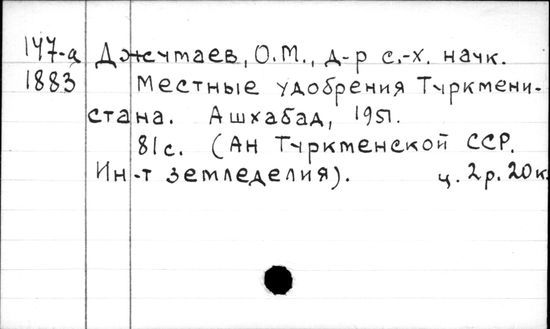 147-а Джумаев, О.М., д-р с.-х. наук.
1883 Местные удобрения Туркмени-
стана. Ашхабад, 1951.
81с. (Ан Туркменской ССР.
Ин-т земледелия). ц. 2р. 20к.